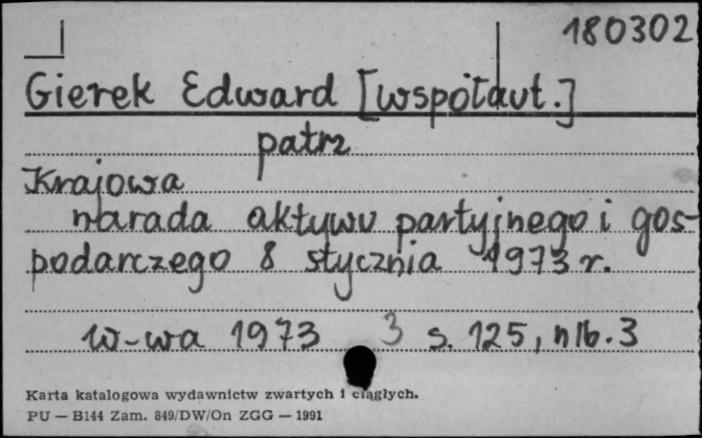 180302
Gierek Edward [współaut.]
patrz
Krajowa
narada aktywu partyjnego i gos-
podarczego 8 stycznia 1973 r.
W-wa 1973 3 s. 125, nlb. 3
Karta katalogowa wydawnictw zwartych i ciągłych.
PU — B144 Zam. 849/DW/On ZGG — 1991